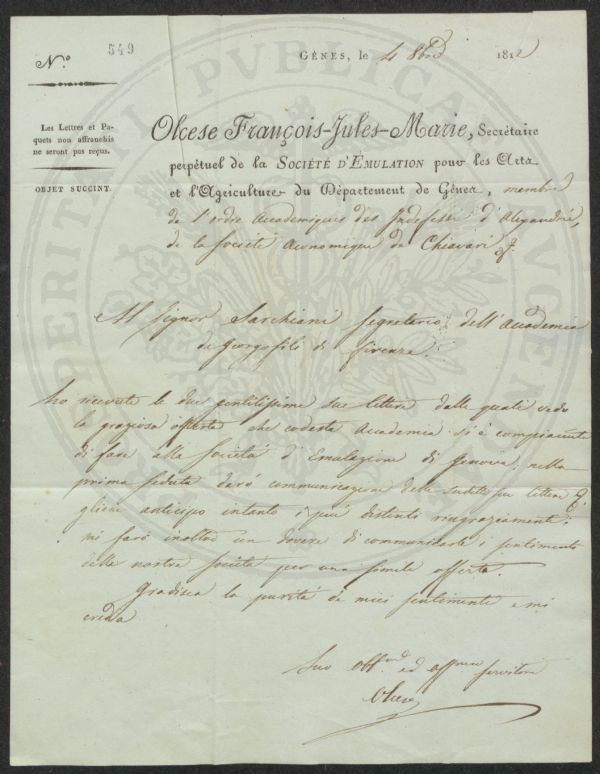 N.º 549
GÊNES, le 4 8bre 1812
Les Lettres et Pa-
quets non affranchis
ne seront pas reçus.
OBJET SUCCINT.
Olcese François-Jules-Marie, Secrétaire
perpétuel de la SOCIÉTÉ D'ÉMULATION pour les Arts
et l'Agriculture du Département de Gênes, membre
de l'ordre Academiques des d'Alexandrie,
de la Société Œconomique de Chiavari &.
Al Signor Sarchiani Segretario dell'Accademia
de Georgofili di Firenze.
Ho ricevute le due gentilissime sue lettere dalle quali vedo
la graziosa offerta che codesta Accademia si è compiaciuta
di fare alla Società d'Emulazione di Genova, nella
prima seduta darò communicazione delle suddette sue lettere &.
gliene anticipo intanto i più distinti ringraziamenti:
mi farò inoltre un dovere di communicarle i sentimenti
della nostra Società per una simile offerta.
Gradisca la purità de miei sentimenti e mi
creda
Suo ed servitore
Olcese
PROSPERITATI PUBLICAE AUGENDAE